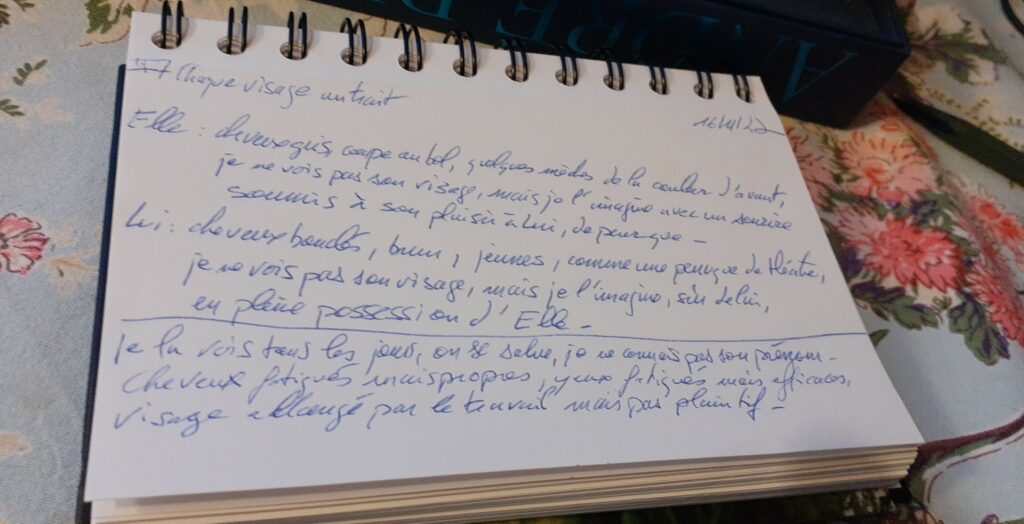 #7 Chaque visage un trait
16/11/22
Elle : cheveux gris, coupe au bol, quelques mèches de la couleur d'avant,
je ne vois pas son visage, mais je l'imagine avec un sourire
soumis à son plaisir à Lui, de peur que –
Lui : cheveux bouclés, brun, jeunes, comme une perruque de théâtre,
je ne vois pas son visage, mais je l'imagine, sûr de lui,
en pleine possession d'Elle –
je la vois tous les jours, on se salue, je ne connais pas son prénom –
cheveux fatigués mais propres, yeux fatigués mais efficaces,
visage allongé par le travail mais pas plaintif –